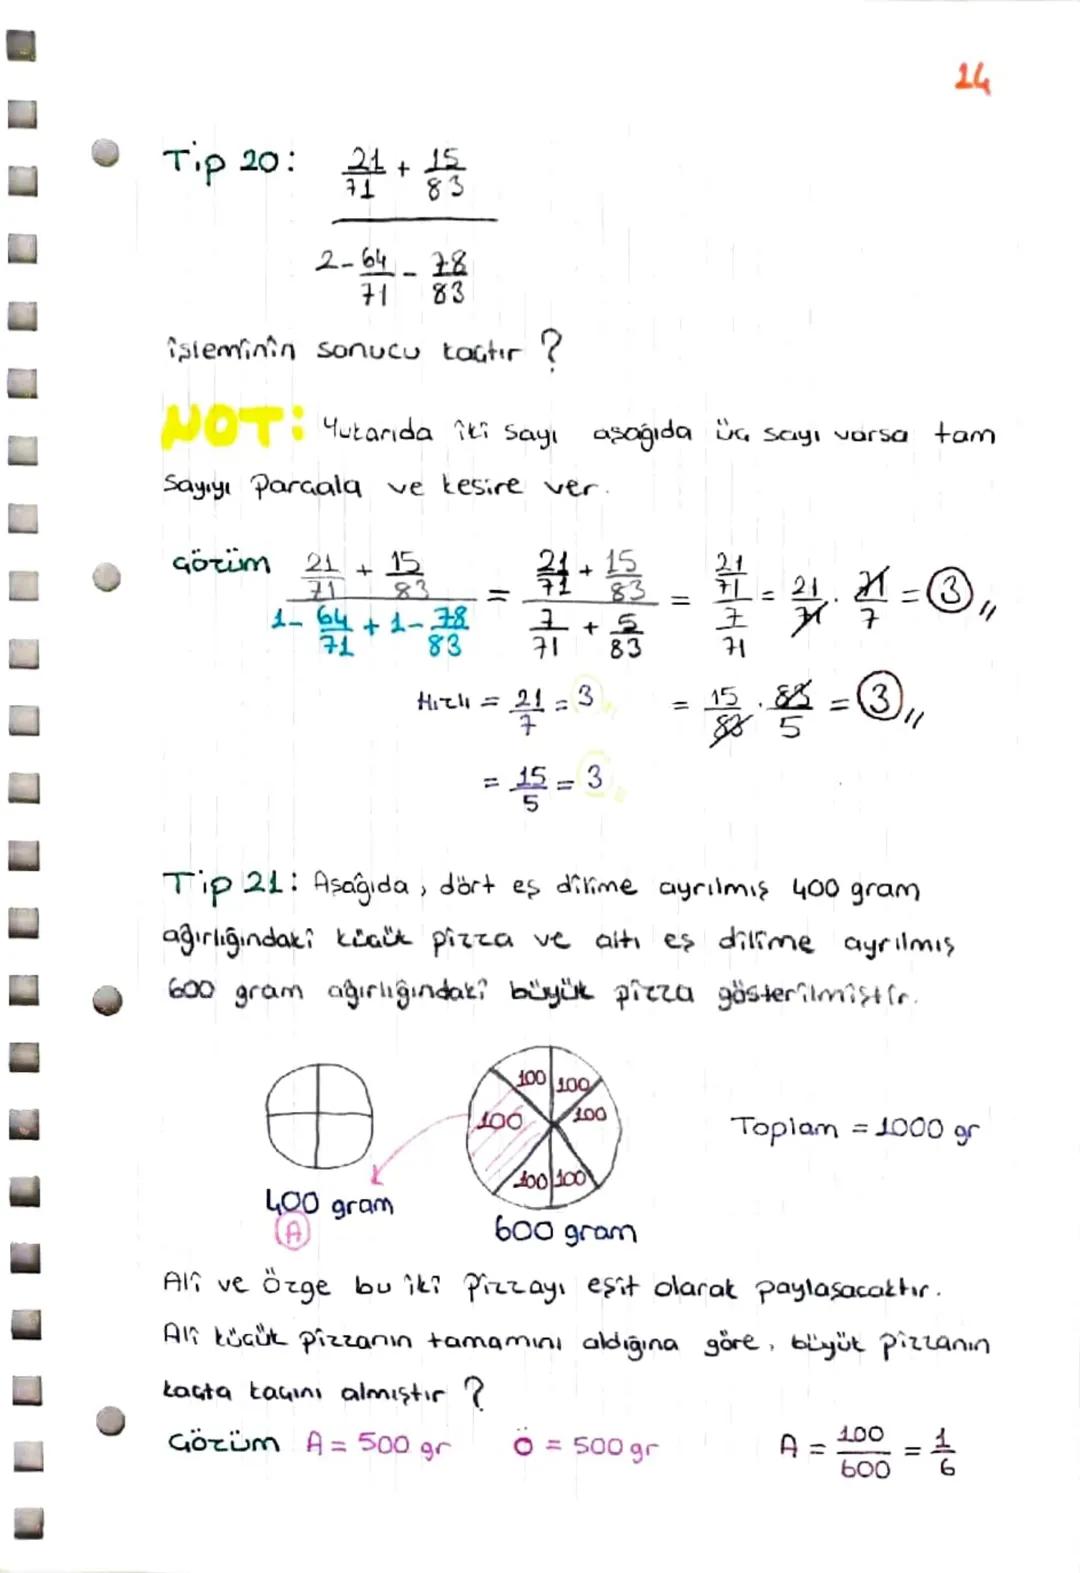 14
Tip 20: 21/71 + 15/83
2 - 64/71 - 78/83
işleminin sonucu kaçtır ?
NOT: Yukarıda iki sayı aşağıda üç sayı varsa tam
sayıyı parçala ve kesire ver.
Çözüm 21/71 + 15/83 = 21/71 + 15/83 = 21/71 = 21/71 . 71/7 = 3,,
1 - 64/71 + 1 - 78/83 7/71 + 5/83 7/71
Hızlı = 21/7 = 3,, = 15/83 . 83/5 = 3,,
= 15/5 = 3,,
Tip 21: Aşağıda, dört eş dilime ayrılmış 400 gram
ağırlığındaki küçük pizza ve altı eş dilime ayrılmış
600 gram ağırlığındaki büyük pizza gösterilmiştir.
100 100
100 100
100 100
Toplam = 1000 gr
400 gram
A
600 gram
Ali ve Özge bu iki pizzayı eşit olarak paylaşacaktır.
Ali küçük pizzanın tamamını aldığına göre, büyük pizzanın
kaçta kaçını almıştır ?
Çözüm A = 500 gr Ö = 500 gr A = 100/600 = 1/6